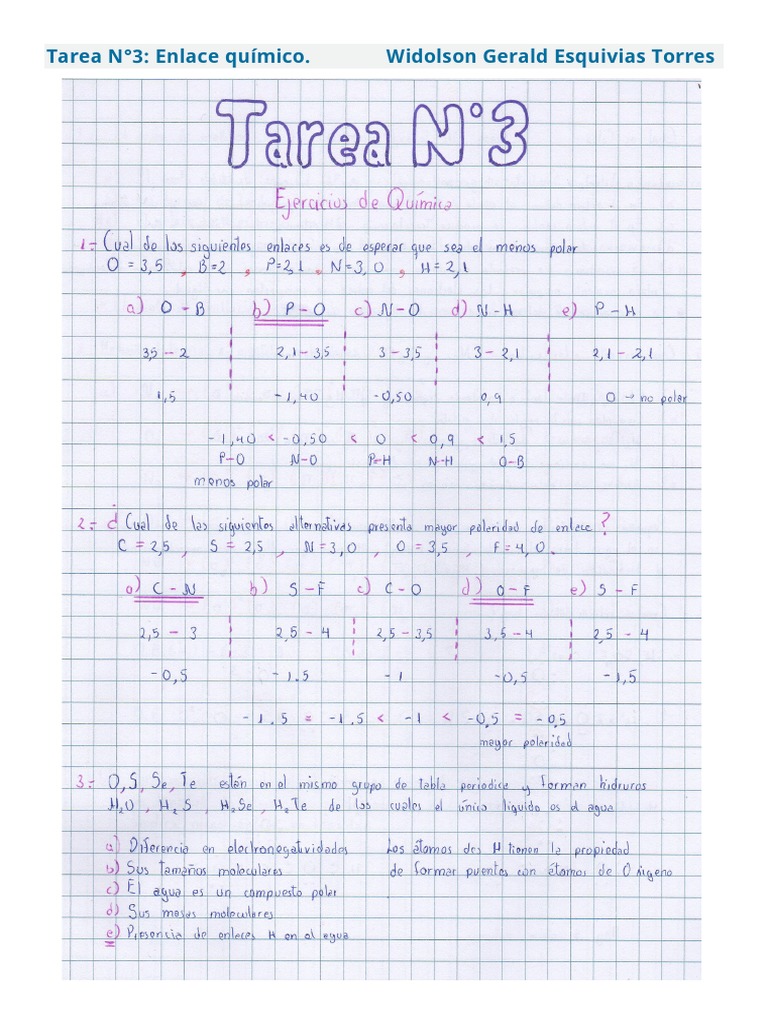 Tarea N°3: Enlace químico. Widolson Gerald Esquivias Torres
Tarea N°3
Ejercicios de Química
1= Cual de los siguientes enlaces es de esperar que sea el menos polar
O = 3,5 , B=2 , P=2,1 . N=3,0 , H=2,1
a) O - B b) P - O c) N - O d) N - H e) P - H
3,5 - 2 2,1 - 3,5 3 - 3,5 3 - 2,1 2,1 - 2,1
1,5 -1,40 -0,50 0,9 0 → no polar
-1,40 < -0,50 < 0 < 0,9 < 1,5
P-O N-O P-H N-H O-B
menos polar
2= ¿ Cual de las siguientes alternativas presenta mayor polaridad de enlace ?
C = 2,5 , S = 2,5 , N=3,0 , O = 3,5 , F= 4,0.
a) C - N b) S - F c) C - O d) O - F e) S - F
2,5 - 3 2,5 - 4 2,5 - 3,5 3,5 - 4 2,5 - 4
-0,5 -1.5 -1 -0,5 -1,5
-1.5 = -1.5 < -1 < -0,5 = -0,5
mayor polaridad
3= O, S, Se, Te están en el mismo grupo de tabla periodica y forman hidruros
H2O , H2S , H2Se , H2Te de los cuales el único liquido es el agua
a) Diferencia en electronegatividades Los átomos des H tienen la propiedad
b) Sus tamaños moleculares de formar puentes con átomos de Oxigeno
c) El agua es un compuesto polar
d) Sus masas moleculares
e) Presencia de enlaces H en el agua